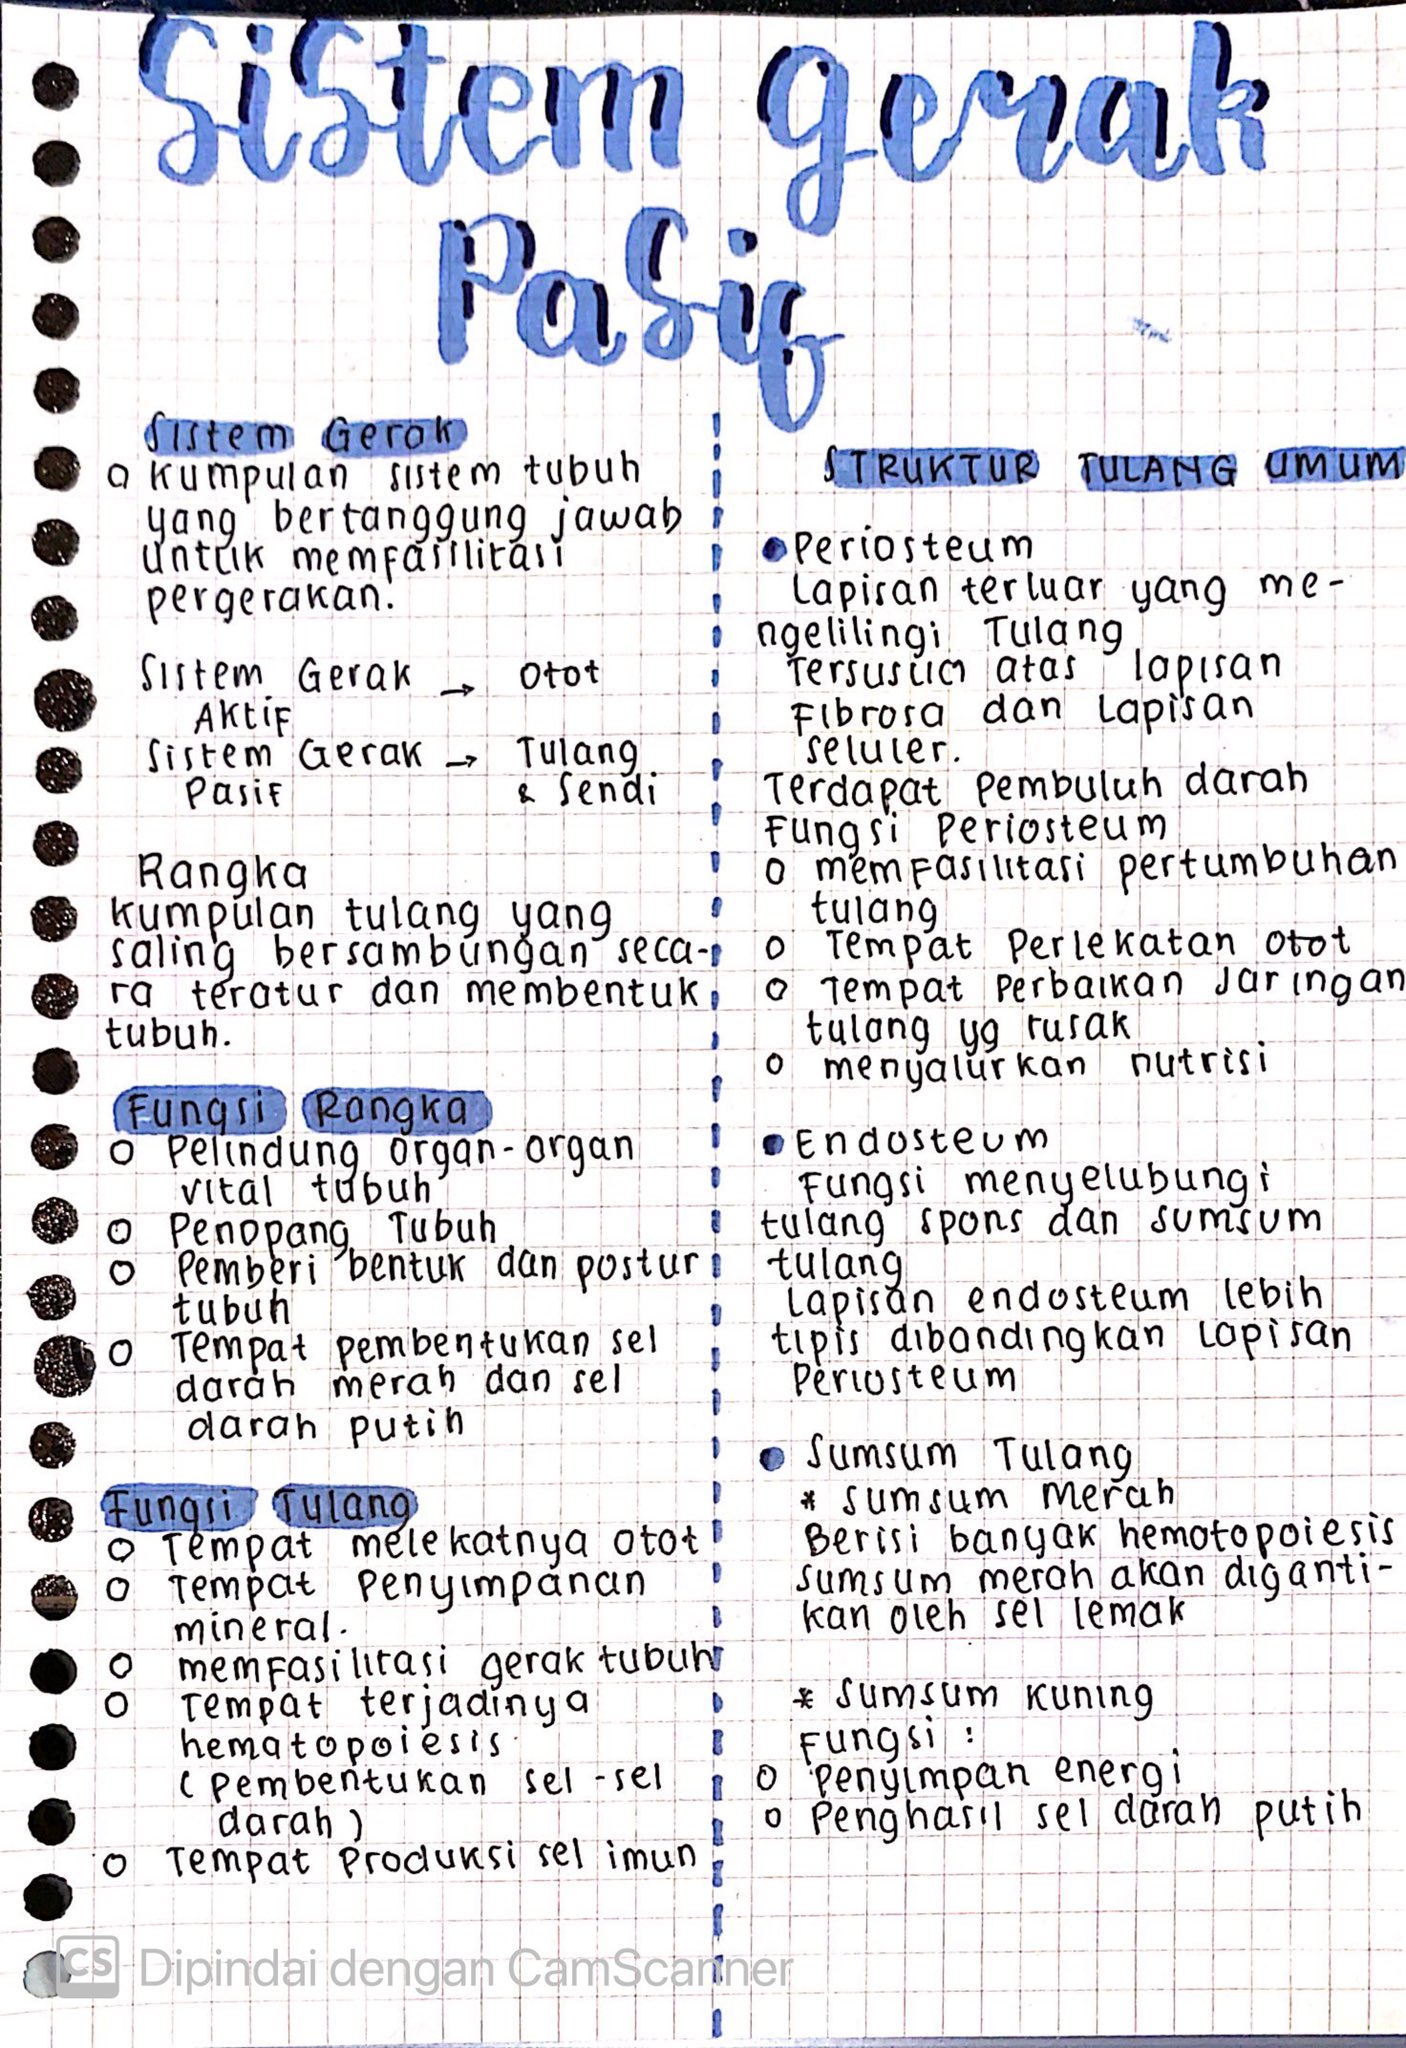 Sistem Gerak
Pasif
Sistem Gerak
Kumpulan sistem tubuh
yang bertanggung jawab
untuk memfasilitasi
pergerakan.
Sistem Gerak → Otot
Aktif
Sistem Gerak → Tulang
Pasif & Sendi
Rangka
Kumpulan tulang yang
saling bersambungan seca-
ra teratur dan membentuk
tubuh.
Fungsi Rangka
o Pelindung organ-organ
vital tubuh
o Penopang Tubuh
o Pemberi bentuk dan postur
tubuh
o Tempat pembentukan sel
darah merah dan sel
darah putih
Fungsi Tulang
o Tempat melekatnya otot
o Tempat Penyimpanan
mineral.
o memfasilitasi gerak tubuh
o Tempat terjadinya
hematopoiesis
(Pembentukan sel-sel
darah)
o Tempat Produksi sel imun
STRUKTUR TULANG UMUM
• Periosteum
Lapisan terluar yang me-
ngelilingi Tulang
Tersusun atas lapisan
Fibrosa dan Lapisan
seluler.
Terdapat Pembuluh darah
Fungsi Periosteum
o memfasilitasi pertumbuhan
tulang
o Tempat Perlekatan otot
o Tempat Perbaikan Jaringan
tulang yg rusak
o menyalurkan nutrisi
• Endosteum
Fungsi menyelubungi
tulang spons dan sumsum
tulang
Lapisan endosteum lebih
tipis dibandingkan Lapisan
Periosteum
• Sumsum Tulang
* Sumsum Merah
Berisi banyak hemotopoiesis
sumsum merah akan diganti-
kan oleh sel lemak
* Sumsum Kuning
Fungsi :
o Penyimpan energi
o Penghasil sel darah putih
CS Dipindai dengan CamScanner